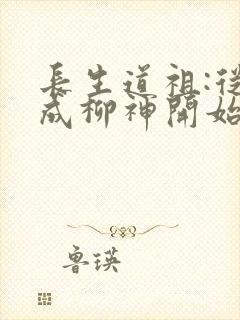 長生道祖:從
成柳神開始
鲁瑛